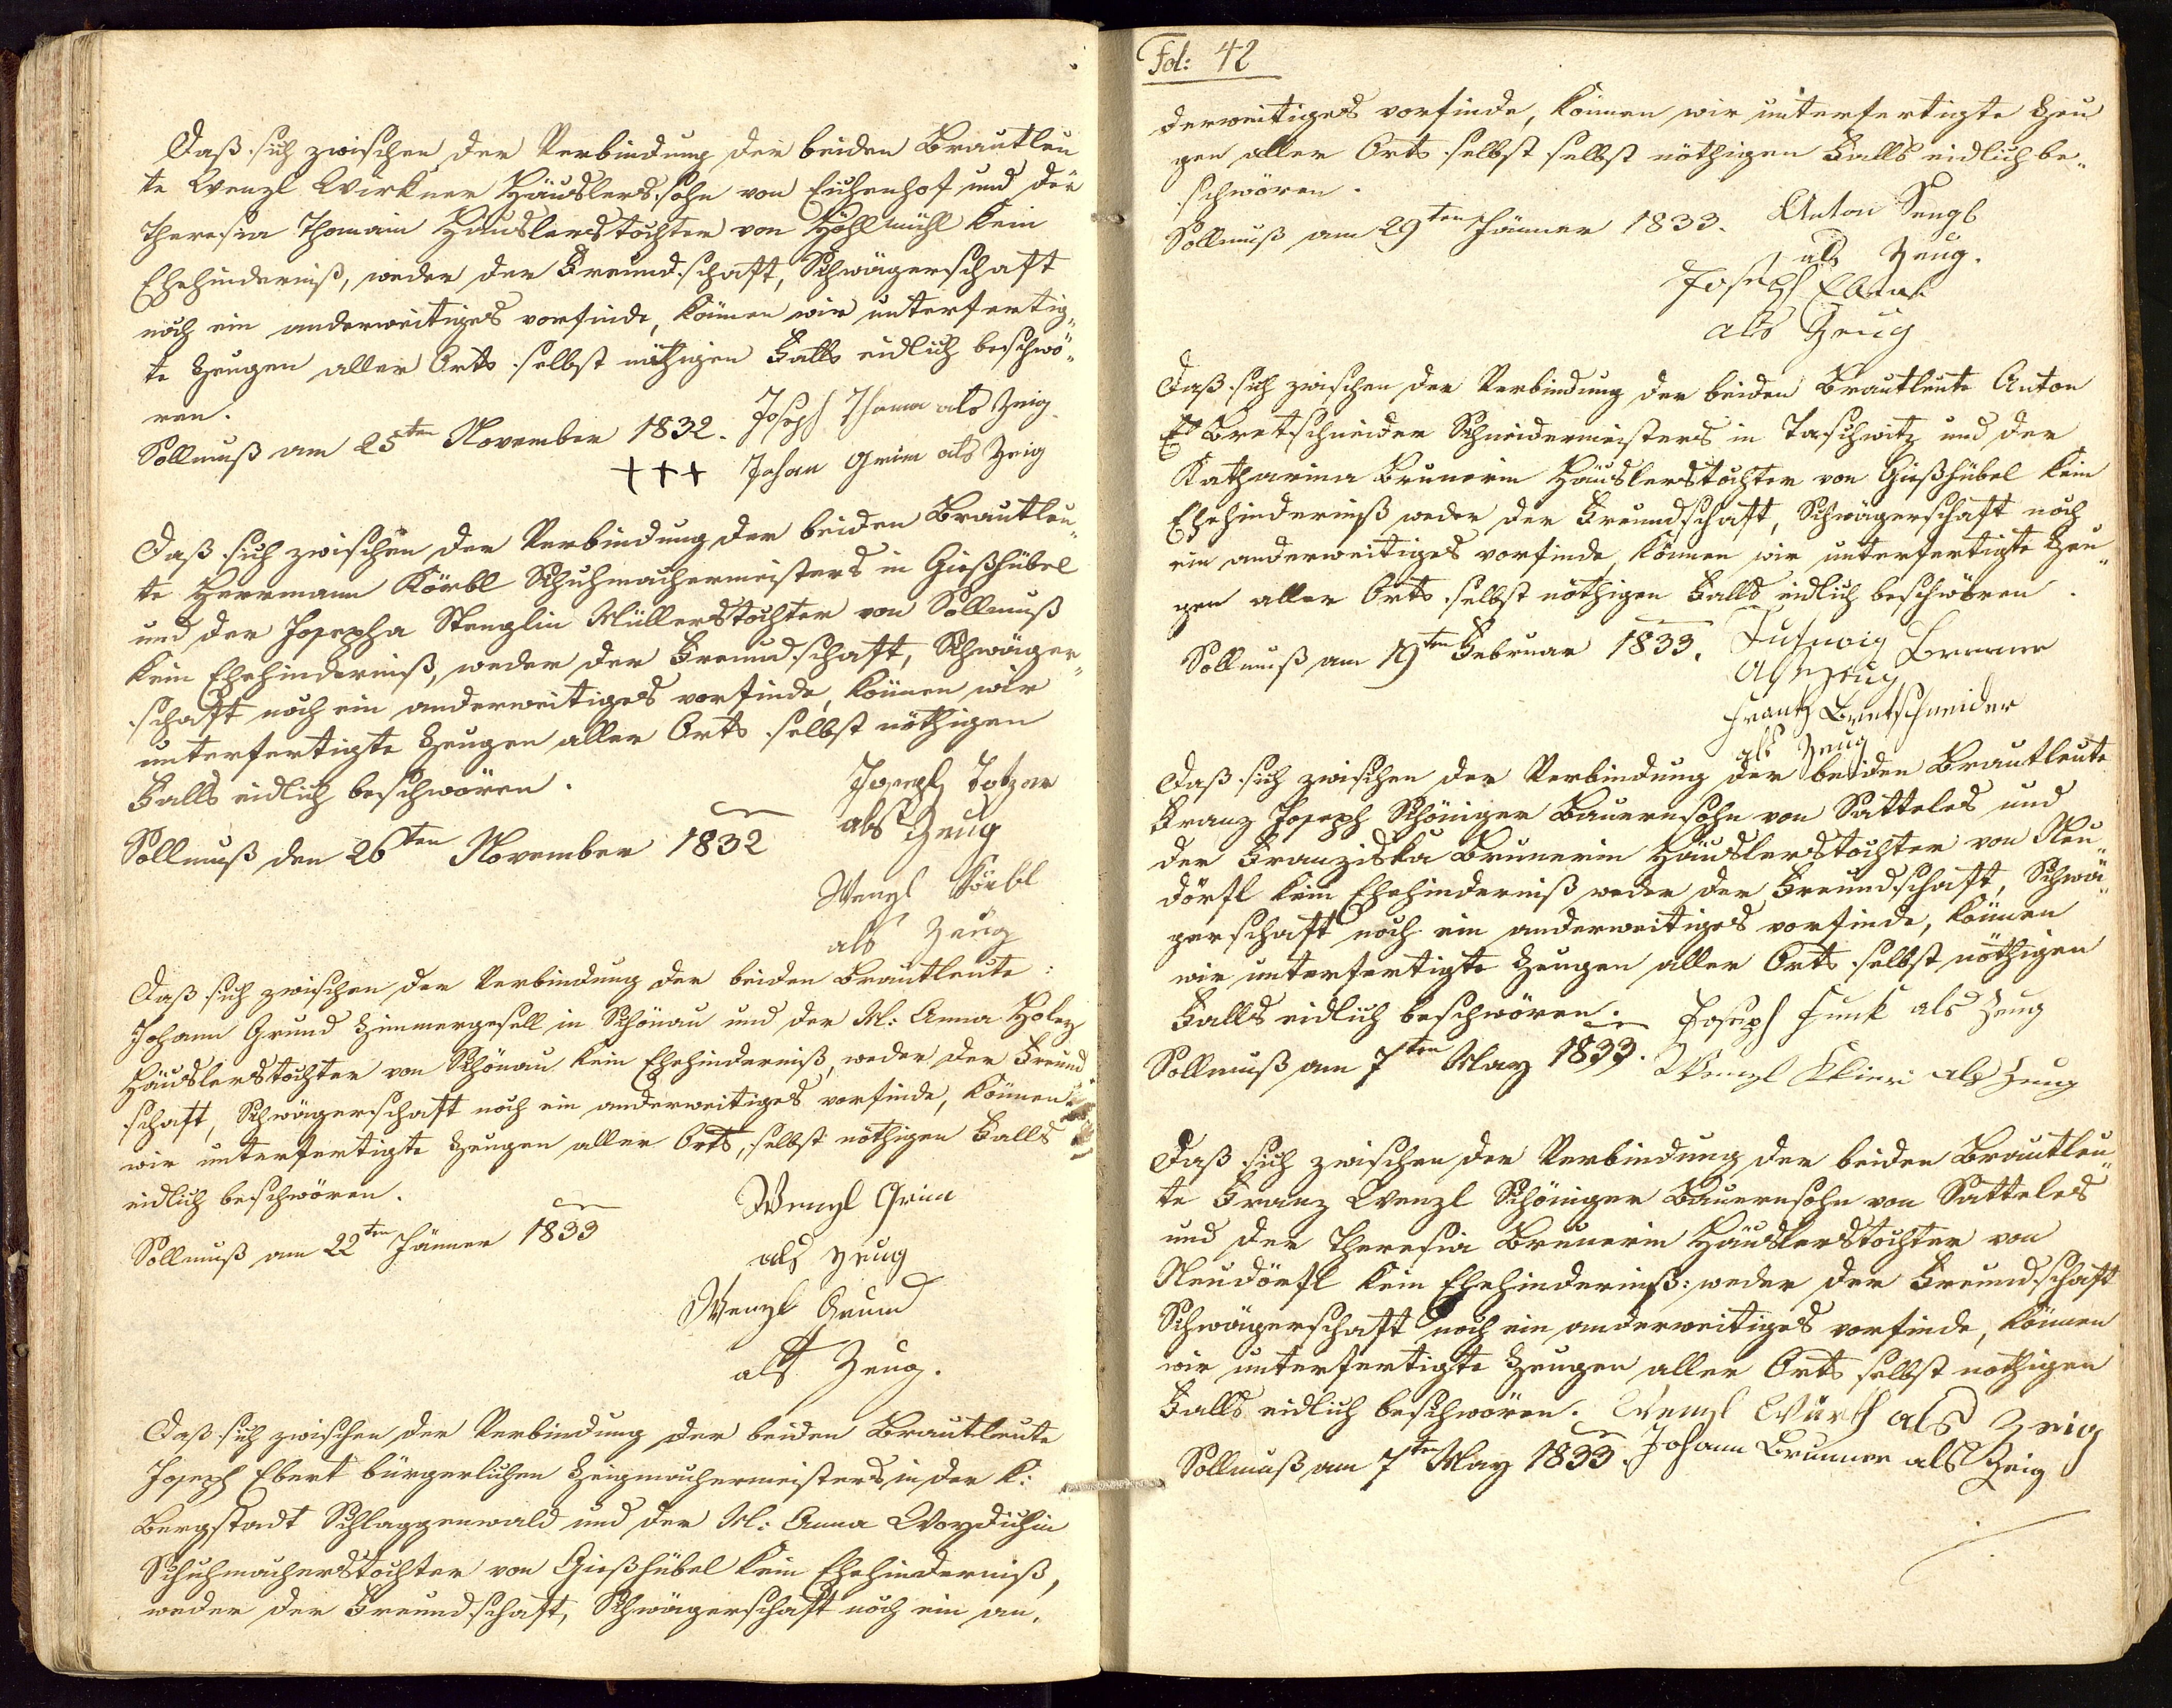 Daß sich zwischen der Verbindung der beiden Brautleu
te Wenzl Wirkner Häuslerssohn von Eichenhof und der
Theresia Thomain Häuslerstochter von Höhlmühl kein
Ehehinderniß, weder der Freundschaft, Schwägerschaft
noch ein anderweitiges vorfinde, können wir unterfertig„
te Zeugen aller Orts selbst nöthigen Falls eidlich beschwö„
ren.
Sollmuß am 25ten November 1832. Joseph Thoma als Zeig
+++ Johan Grim als Zeig
Daß sich zwischen der Verbindung der beiden Brautleu„
te Herrmann Körbl Schuhmachermeisters in Gießhübel
und der Josepha Stenglin Müllerstochter von Sollmuß
kein Ehehinderniß, weder der Freundschaft, Schwäger„
schaft noch ein anderweitiges vorfinde, können wir
unterfertigte Zeugen aller Orts selbst nöthigen
Falls eidlich beschwören.
Joseph Totzer
Sollmuß den 26ten November 1832 als Zeug
Wenzl Körbl
als Zeug
Daß sich zwischen der Verbindung der beiden Brautleute:
Johann Grund Zimmergesell in Schönau und der M: Anna Holey
Häuslerstochter von Schönau kein Ehehinderniß, weder der Freund
schaft, Schwägerschaft noch ein anderweitiges vorfinde, können
wir unterfertigte Zeugen aller Orts, selbst nöthigen Falls
eidlich beschwören.
Wenzl Grim
Sollmuß am 22ten Jänner 1833
als Zeug
Wenzl Grund
als Zeug.
Daß sich zwischen der Verbindung der beiden Brautleute
Joseph Ebert bürgerlichen Zeigmachermeisters in der K:
Bergstadt Schlaggenwald und der M: Anna Woydichin
Schuhmacherstochter von Gießhübel kein Ehehinderniß,
weder der Freundschaft, Schwägerschaft noch ein an„
Fol: 42
derweitiges vorfinde, können wir unterfertigte Zeu
gen aller Orts selbst selbst nöthigen Falls eidlich be„
schwören.
Sollmuß am 29ten Jänner 1833. Anton Sengl
als Zeug.
Joseph Ebert
als Zeug
Daß sich zwischen der Verbindung der beiden Brautleute Anton
Bretschneider Schneidermeisters in Taschwitz und der
Katharina Brunerin Häuslerstochter von Gießhübel kein
Ehehinderniß weder der Freundschaft, Schwägerschaft noch
ein anderweitiges vorfinde, können wir unterfertigte Zeu„
gen aller Orts selbst nöthigen Falls eidlich beschwören.
Sollmuß am 19ten Februar 1833. Brunner
Als Zeug
Frantz Bretschneider
als Zeug
Daß sich zwischen der Verbindung der beiden Brautleute
Franz Joseph Schöniger Bauernsohn von Satteles und
der Franziska Brunerin Häuslerstochter von Neu„
dörfl kein Ehehinderniß weder der Freundschaft, Schwä„
gerschaft noch ein anderweitiges vorfinde, können
wir unterfertigte Zeugen aller Orts selbst nöthigen
Falls eidlich beschwören. Joseph Funk als Zeug
Sollmuß am 7ten May 1833. Wenzl als Zeug
Daß sich zwischen der Verbindung der beiden Brautleu„
te Franz Wenzl Schöniger Bauernsohn von Satteles
und der Theresia Brunerin Häuslerstochter von
Neudörfl kein Ehehinderniß: weder der Freundschaft
Schwägerschaft noch ein anderweitiges vorfinde, können
wir unterfertigte Zeugen aller Orts selbst nothigen
Falls eidlich beschwören. Wenzl Würth als Zeig
Sollmuß am 7ten May 1833. Johann Brunner als Zeig